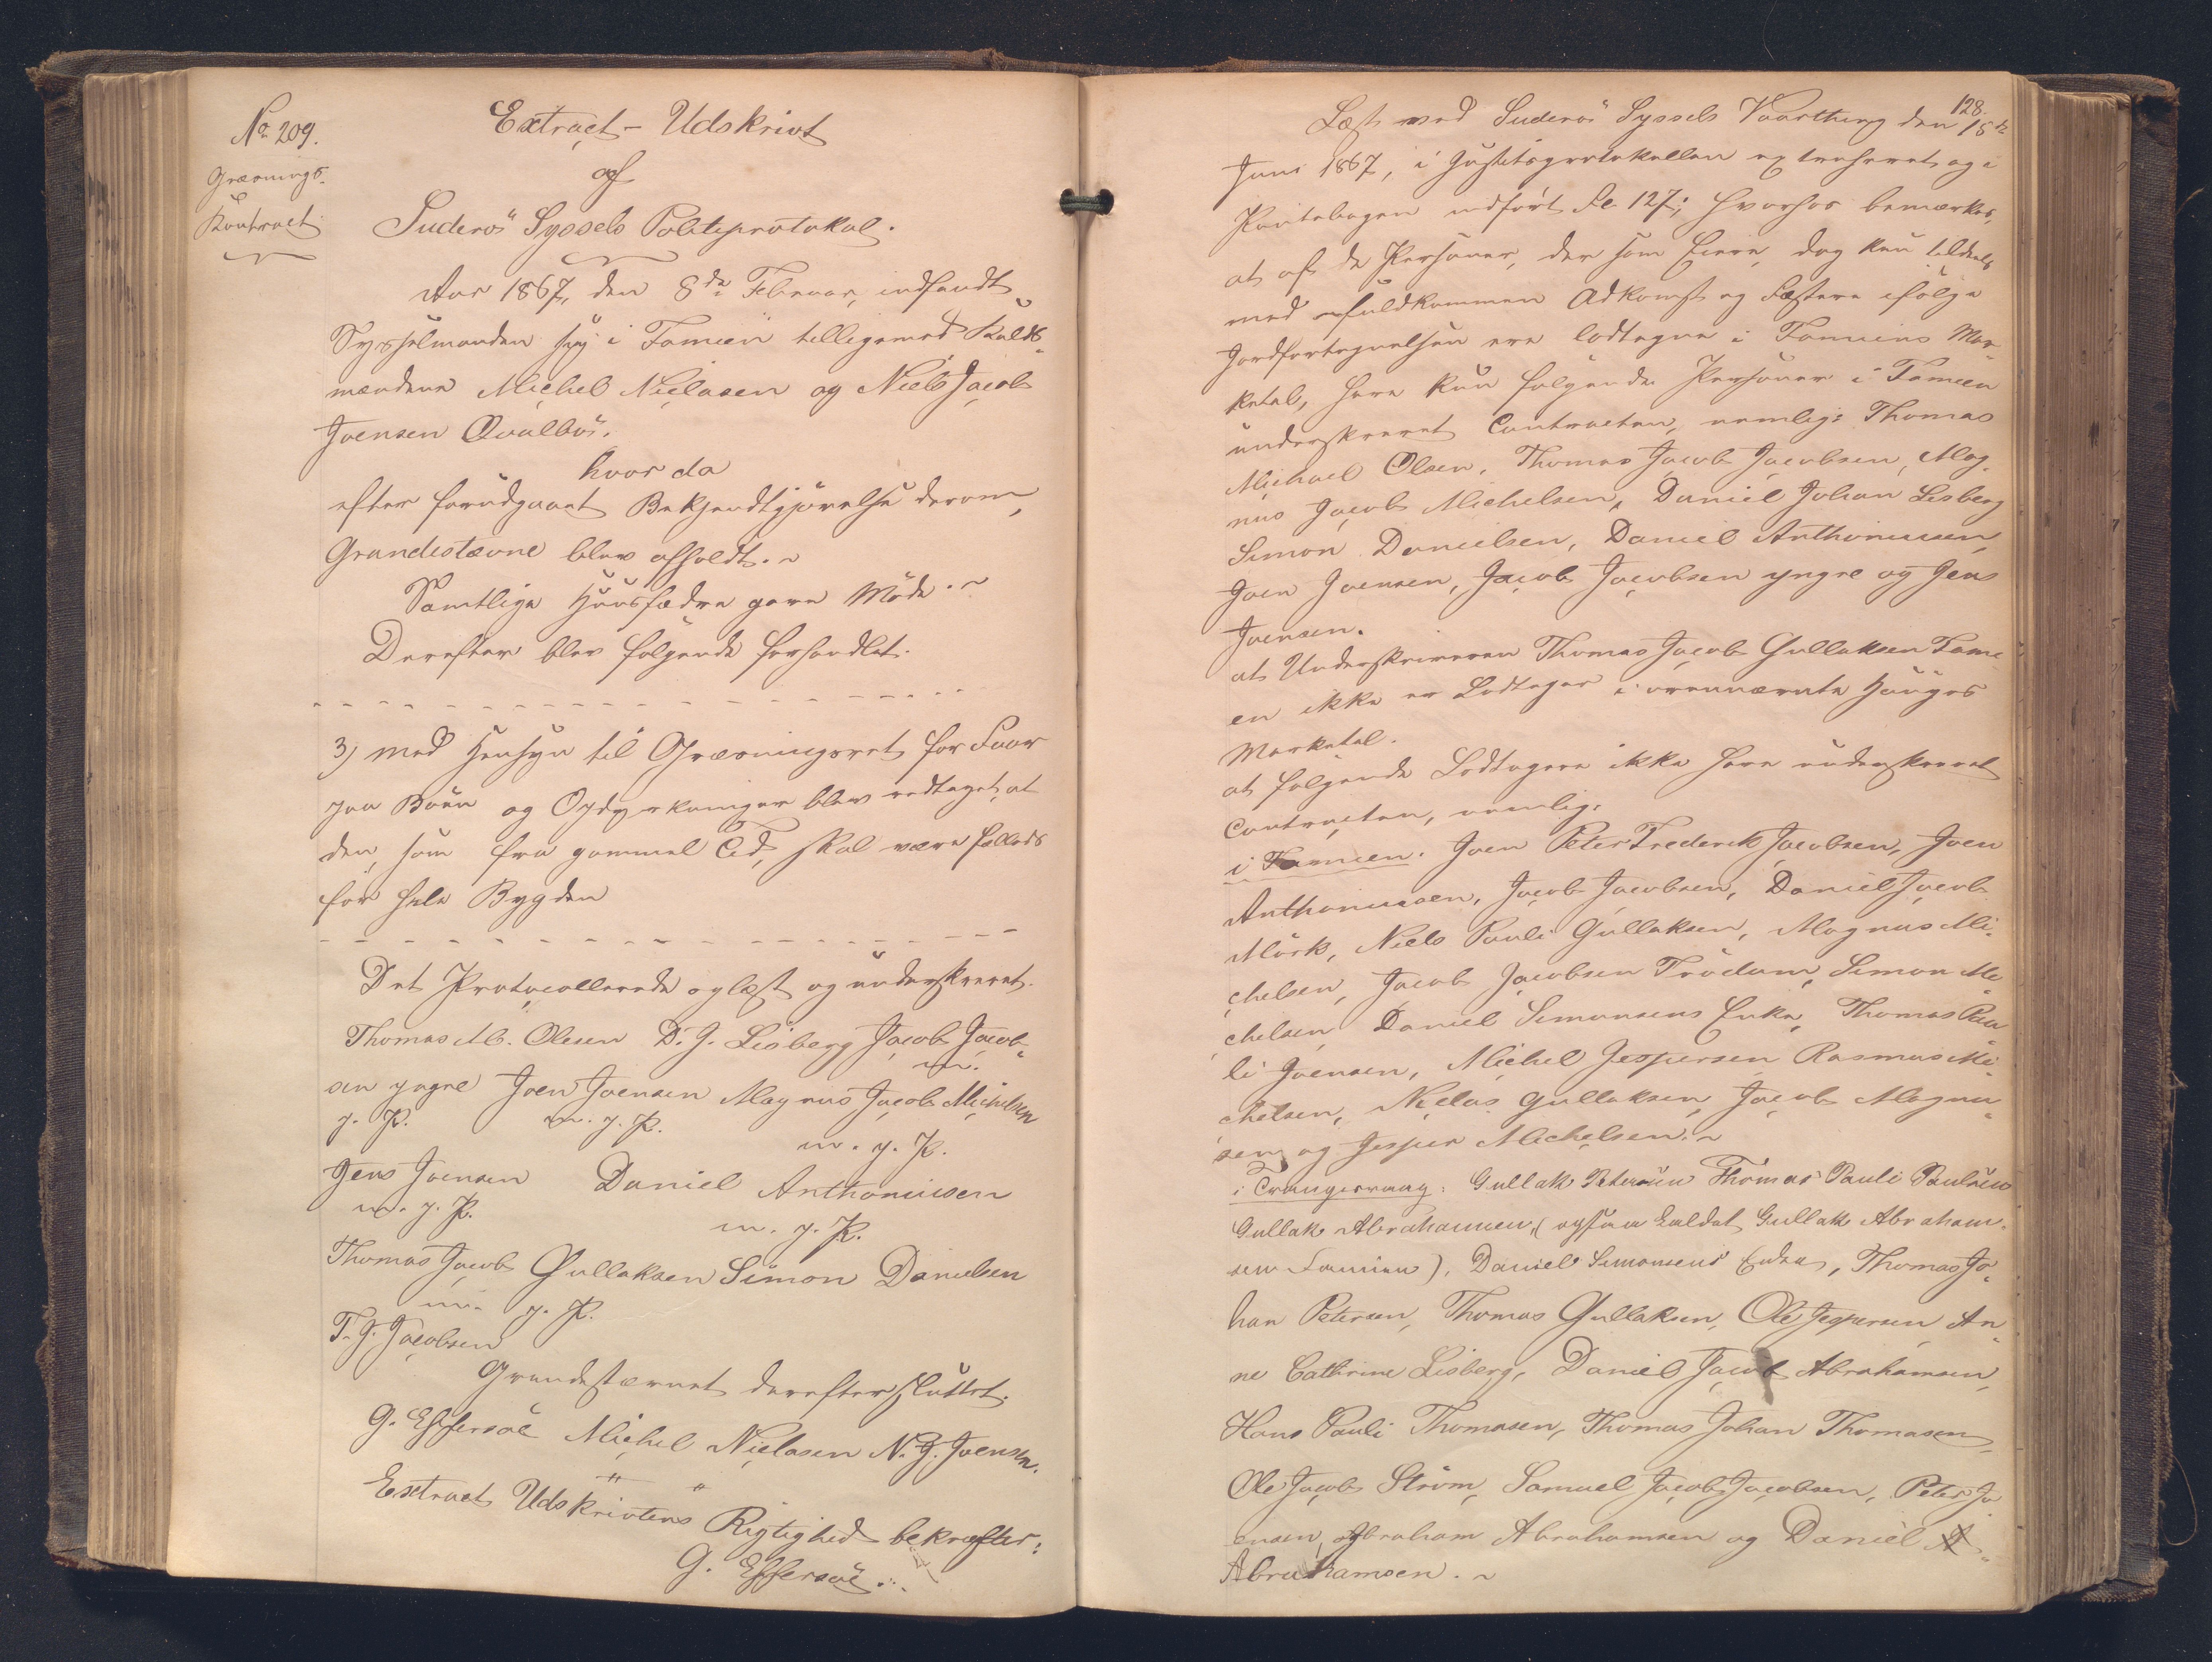 No 209.
Græsnings-
Kontract
Extract-Udskrivt
af
Suderö Syssels Politiprotokol.
Aar 1867, den 8de Februar, indfandt
Sysselmanden sig i Famien tilligemed Kalds-
mændene Michel Nielasen og Niels Jacob
Joensen Qvalböi.
hvor da
efter forudgaaet Bekjendtgjörelse derom,
Grandestævne blev afholdt.
Samtlige Huusfædre gave Möde.
Derefter blev fölgende forhandlet.
3) med Hensyn til Græsningsret for Faar
paa Böen og Opdyrkninger blev vedtaget, at
den, som fra gammel Tid, skal være fælleds
for hele Bygden
Det Protocollerede oplæst og underskrevet.
Thomas M. Olesen D. J. Lisberg Jacob Jacob-
m.
sen yngre Joen Joensen Magnus Jacob Michelsen
p. P. m. p. P. m. p. P.
Jens Joensen Daniel Anthoniusen
m. p. P. m. p. P.
Thomas Jacob Gullaksen Simon Danielsen
m. p. P.
T. J. Jacobsen
Grandestævnet derefter sluttet.
G. Effersöe Michel Nielasen N. J. Joensen.
Extract Udskrivtens Rigtighed bekræfter:
G. Effersöe.
128.
Læst ved Suderö Syssels Vaarthing den 15de
Juni 1867, i Justitsprotokollen extraheret og i
Pantebogen indfört Fo 127; hvorhos bemærkes,
at af de Personer, der som Eiere, dog kun tildeels
med fuldkommen Adkomst og Fæstere ifölge
Jordfortegnelsen ere lodtagne i Famiens Mar-
ketal, have kun fölgende Personer i Famien
underskrevet Contracten, nemlig: Thomas
Michael Olsen, Thomas Jacob Jacobsen, Mag-
nus Jacob Michelsen, Daniel Johan Lisberg
Simon Danielsen, Daniel Anthoniussen,
Joen Joensen, Jacob Jacobsen yngre og Jens
Joensen.
at Underskriveren Thomas Jacob Gullaksen Fami-
en ikke er Lodtager i ovennævnte Hauges
Marketal.
at fölgende Lodtagere ikke have underskrevet
Contracten, nemlig:
i Famien. Joen Peter Frederik Jacobsen, Joen
Anthoniussen, Jacob Jacobsen, Daniel Jacob
Mörk, Niels Pauli Gullaksen, Magnus Mi-
chelsen, Jacob Jacobsen Trödum, Simon Mi-
chelsen, Daniel Simonsens Enke, Thomas Pau-
li Joensen, Michel Jespersen, Rasmus Mi-
chelsen, Nielas Gullaksen, Jacob Magnu-
sen og Jesper Michelsen.
i Trangisvaag: Gullak Petersen Thomas Pauli Paulsen
Gullak Abrahamsen, (ogsaa kaldet Gullak Abraham-
sen Famien), Daniel Simonsens Enke, Thomas Jo-
han Petersen, Thomas Gullaksen, Ole Jespersen, An-
ne Cathrine Lisberg, Daniel Jacob Abrahamsen,
Hans Pauli Thomasen, Thomas Johan Thomasen,
Ole Jacob Ström, Samuel Jacob Jacobsen, Peter Jo-
ensen, Abraham Abrahamsen og Daniel
Abrahamsen.